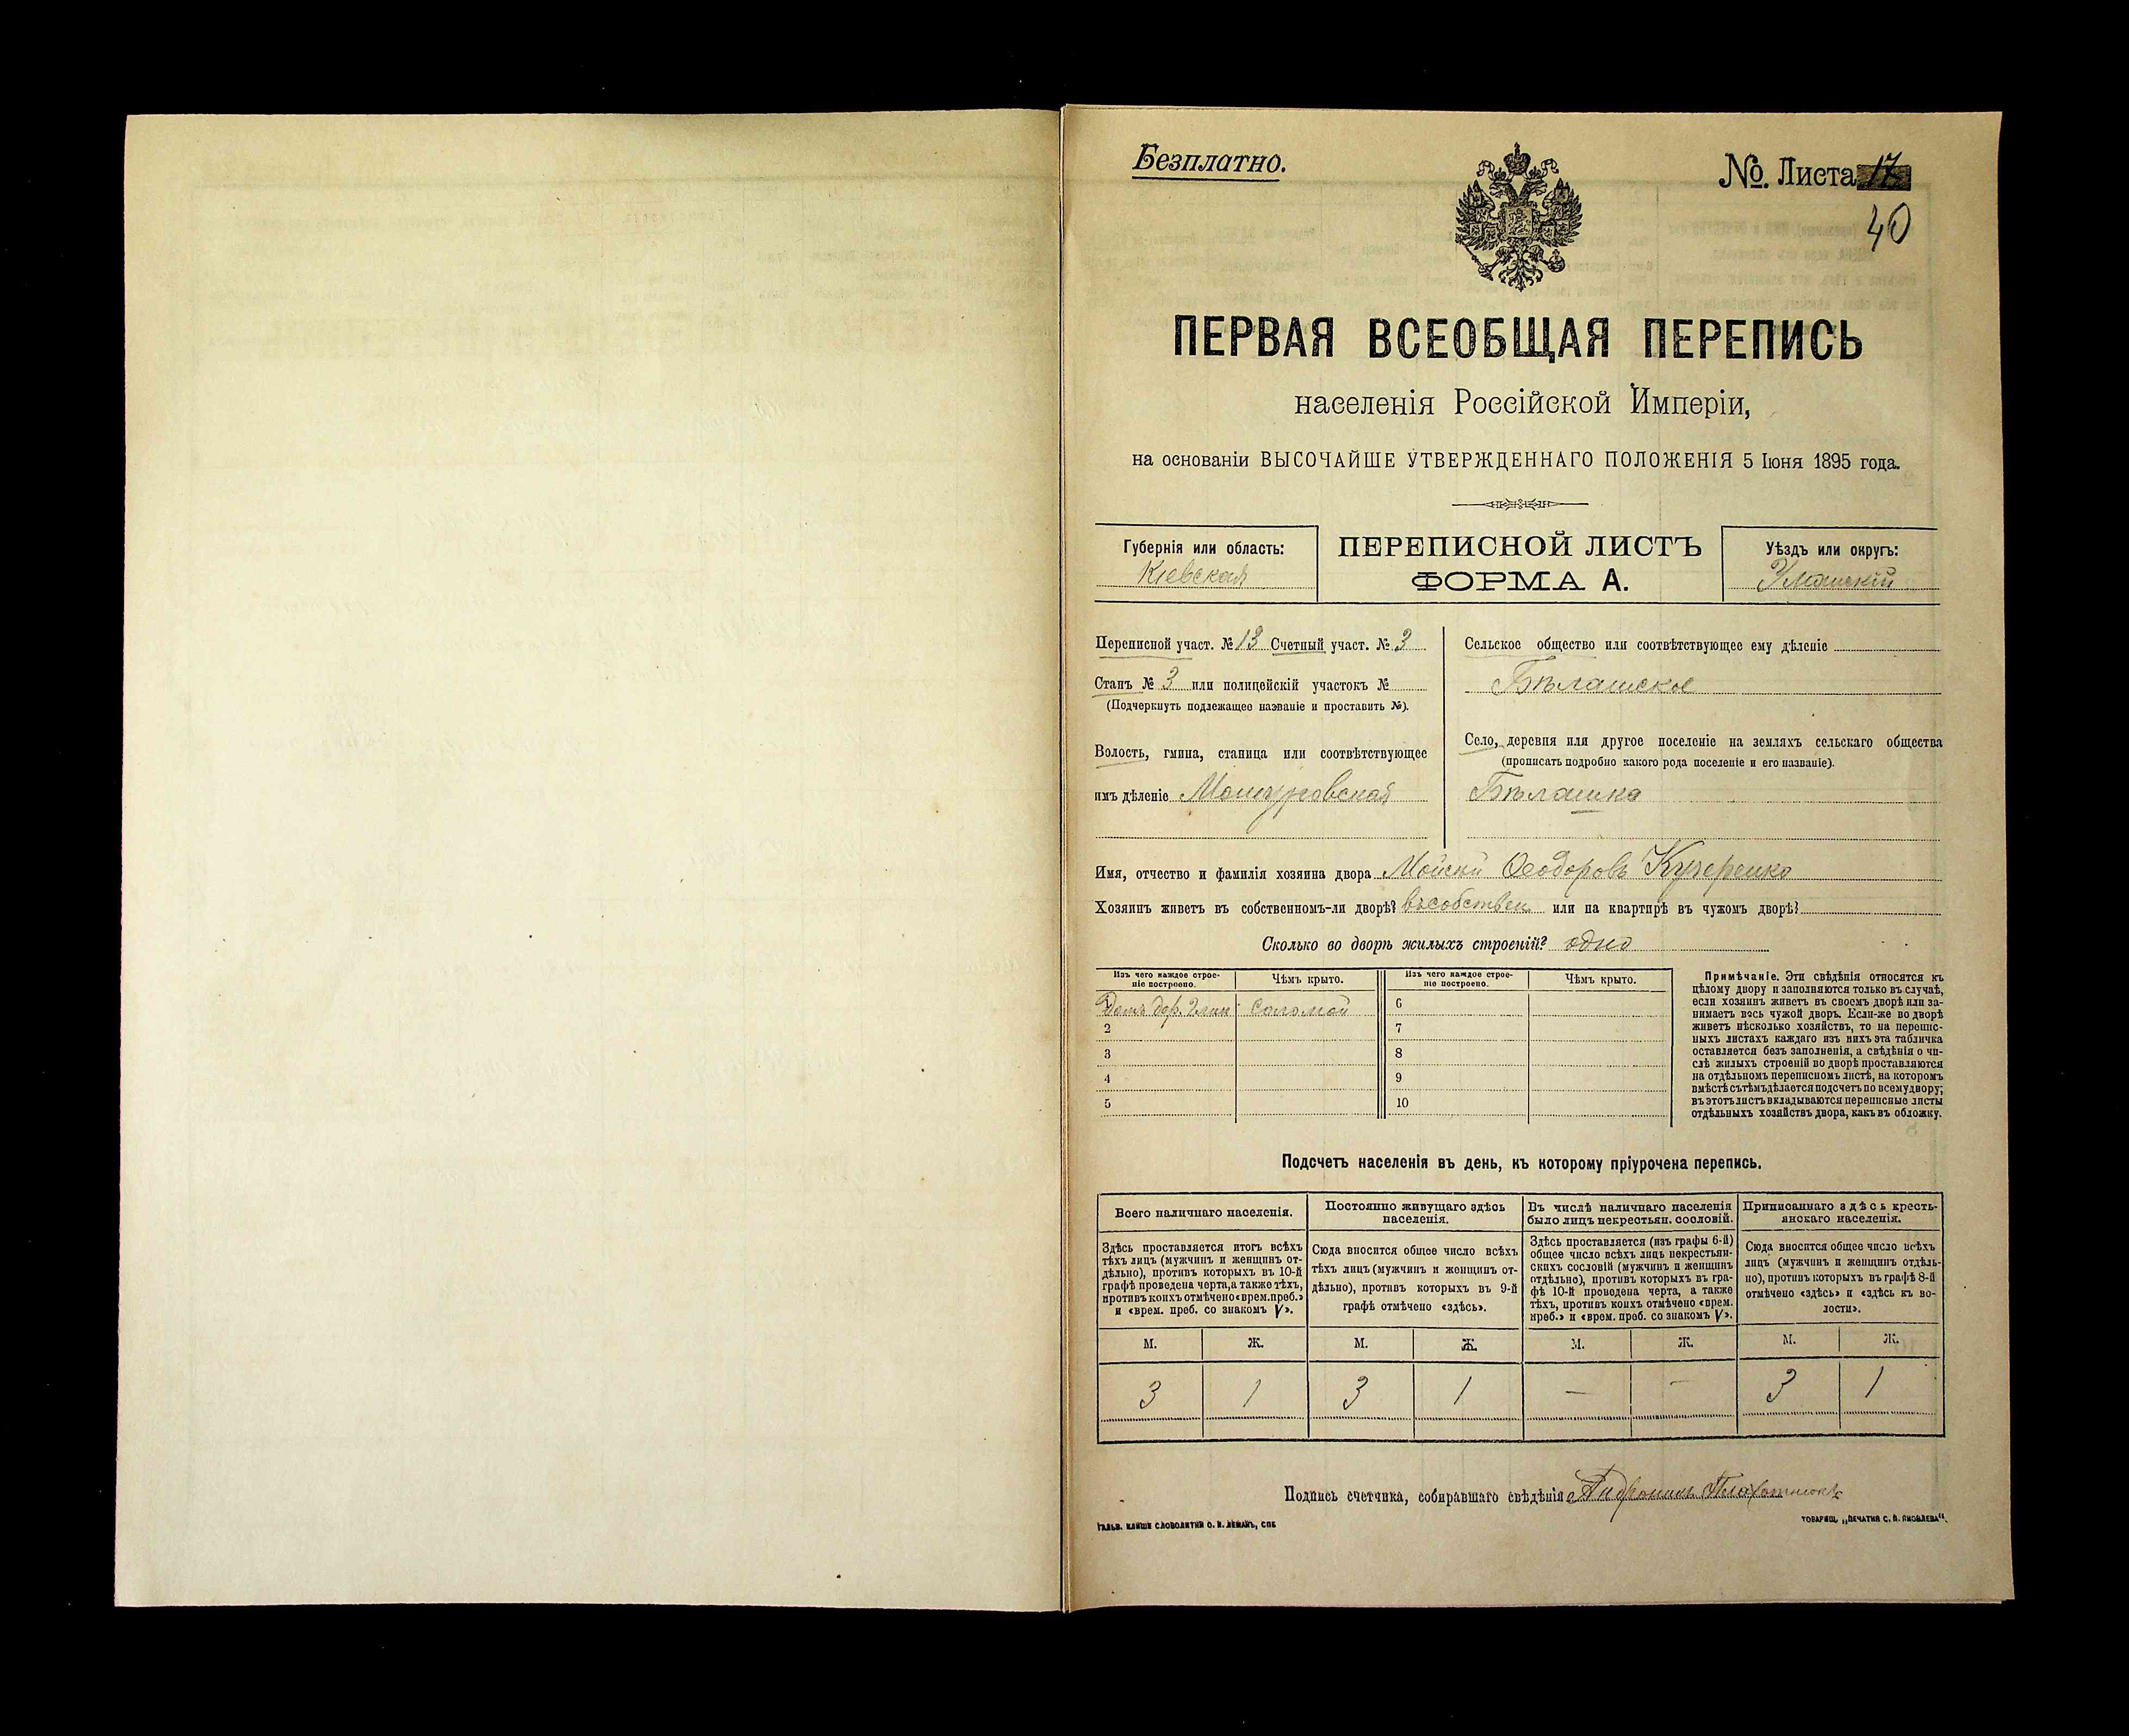 Безплатно.
№. Листа 17
40
ПЕРВАЯ ВСЕОБЩАЯ ПЕРЕПИСЬ
населенія Россійской Имперіи,
на основаніи ВЫСОЧАЙШЕ УТВЕРЖДЕННАГО ПОЛОЖЕНІЯ 5 Іюня 1895 года.
Губернія или область:
Кіевская
ПЕРЕПИСНОЙ ЛИСТЪ
ФОРМА А.
Уѣздъ или округъ:
Уманскій
Переписной участ. № 13 Счетный участ. № 3
Станъ № 3 или полицейскій участокъ №
(Подчеркнуть подлежащее названіе и проставить №).
Волость, гмина, станица или соотвѣтствующее
имъ дѣленіе Машуровская
Сельское общество или соотвѣтствующее ему дѣленіе
Бѣлашское
Село, деревня или другое поселеніе на земляхъ сельскаго общества
(прописать подробно какого рода поселеніе и его названіе).
Бѣлашка
Имя, отчество и фамилія хозяина двора Мойсей Ѳеодоровъ Кучеренко
Хозяинъ живетъ въ собственномъ-ли дворѣ? въ собствен или на квартирѣ въ чужомъ дворѣ?
Сколько во дворѣ жилыхъ строеній? одно
Изъ чего каждое строе-
ніе построено.
Чѣмъ крыто.
Изъ чего каждое строе-
ніе построено.
Чѣмъ крыто.
Домъ дер. глин соломой 6
2 7
3 8
4 9
5 10
Примѣчаніе. Эти свѣдѣнія относятся къ
цѣлому двору и заполняются только въ случаѣ,
если хозяинъ живетъ въ своемъ дворѣ или за-
нимаетъ весь чужой дворъ. Если-же во дворѣ
живетъ нѣсколько хозяйствъ, то на перепис-
ныхъ листахъ каждаго изъ нихъ эта табличка
оставляется безъ заполненія, а свѣдѣнія о чи-
слѣ жилыхъ строеній во дворѣ проставляются
на отдѣльномъ переписномъ листѣ, на которомъ
вмѣстѣ съ тѣмъ дѣлается подсчетъ по всему двору;
въ этотъ листъ вкладываются переписные листы
отдѣльныхъ хозяйствъ двора, какъ въ обложку.
Подсчетъ населенія въ день, къ которому пріурочена перепись.
Всего наличнаго населенія.
Здѣсь проставляется итогъ всѣхъ
тѣхъ лицъ (мужчинъ и женщинъ от-
дѣльно), противъ которыхъ въ 10-й
графѣ проведена черта, а также тѣхъ,
противъ коихъ отмѣчено «врем. преб.»
и «врем. преб. со знакомъ V».
Постоянно живущаго здѣсь
населенія.
Сюда вносится общее число всѣхъ
тѣхъ лицъ (мужчинъ и женщинъ от-
дѣльно), противъ которыхъ въ 9-й
графѣ отмѣчено «здѣсь».
Въ числѣ наличнаго населенія
было лицъ некрестьян. сословій.
Здѣсь проставляется (изъ графы 6-й)
общее число всѣхъ лицъ некрестьян-
скихъ сословій (мужчинъ и женщинъ
отдѣльно), противъ которыхъ въ гра-
фѣ 10-й проведена черта, а также
тѣхъ, противъ коихъ отмѣчено «врем.
преб.» и «врем. преб. со знакомъ V».
Приписаннаго здѣсь кресть-
янскаго населенія.
Сюда вносится общее число всѣхъ
лицъ (мужчинъ и женщинъ отдѣль-
но), противъ которыхъ въ графѣ 8-й
отмѣчено «здѣсь» и «здѣсь къ во-
лости».
М. Ж. М. Ж. М. Ж. М. Ж.
3 1 3 1 — — 3 1
Подпись счетчика, собиравшаго свѣдѣнія Андроникъ Плахотнюкъ
ГАЛЬВ. КЛИШЕ СЛОВОЛИТНИ О. И. ЛЕМАНЪ, СПБ
ТОВАРИЩ. „ПЕЧАТНЯ С. П. ЯКОВЛЕВА“.